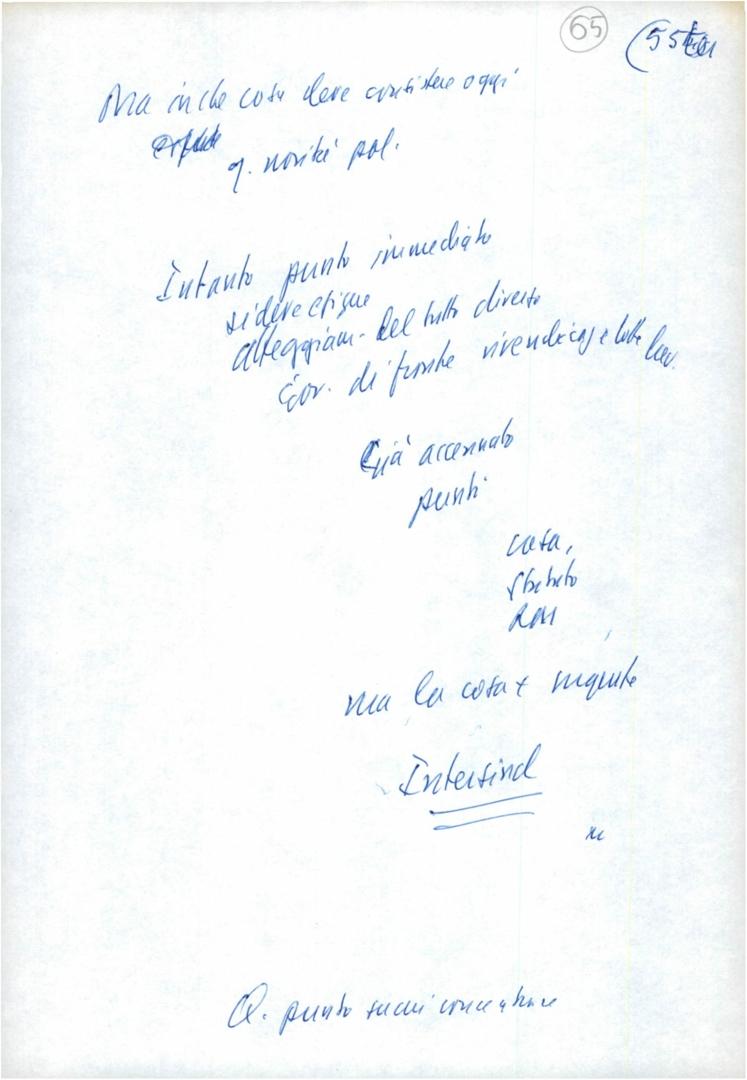 65
(55
Ma in che cosa deve consistere oggi
q. novità pol.
Intanto punto immediato
si deve esigere
atteggiam. del tutto diverso
Gov. di fronte rivendicaz e lotte lav.
Già accennato
punti
casa,
Statuto
RAI
ma la cosa + urgente
Intersind
Q. punto su cui concentrare